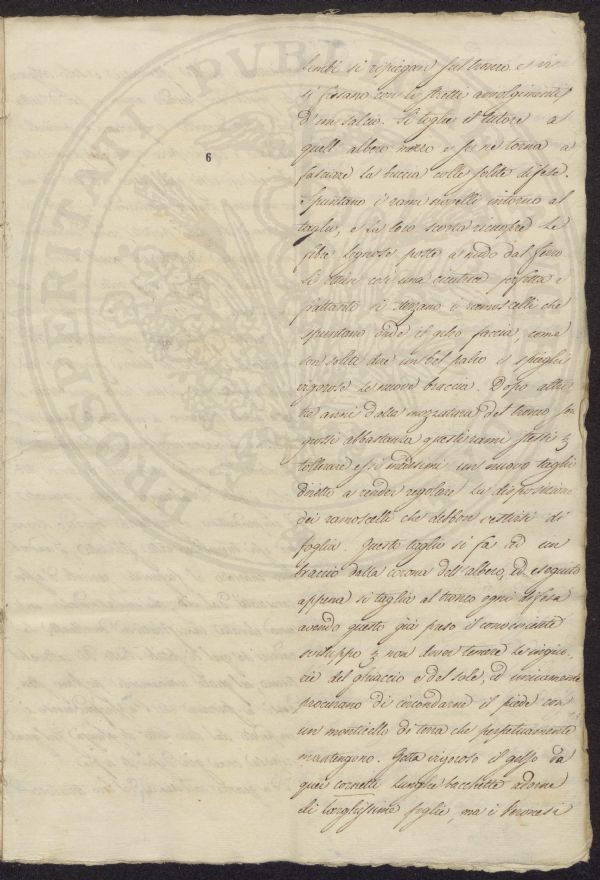 lembi si ripiegan sul tronco e
si fissano con li stretti avvolgimenti
d'un salcio. Si toglie il tutore a
quell' albero mozzo e se ne torna a
fasciare la buccia colle solite difese.
6
Spuntano i rami novelli intorno al
taglio, e la loro scorza ricuopre le
fibre legnose poste a nudo dal ferro
Si ottien così una cicatrice perfetta e
frattanto si i ramoscelli che
spuntano onde il gelso faccia, come
son solite dire un bel palco e spieghi
vigorose le nuove braccia. Dopo altri
tre anni dalla mozzatura del tronco son
grossi abbastanza questi rami stessi p
tollerare essi medesimi un nuovo taglio
diretto a render regolare la disposizione
dei ramoscelli che debbon vestirsi di
foglia. Questo taglio si fa ad un
braccio dalla corona dell' albero, ed eseguito
appena si taglia al tronco ogni difesa
avendo questo già preso il conveniente
sviluppo p non dover temere le ingiu-
rie del ghiaccio e del sole, ed unicamente
procurano di circondarne il piede con
un monticello di terra che perpetuamente
mantengono. Getta vigoroso il gelso da
quei cornetti lunghe bacchette adorne
di larghissime foglie, ma i Veronesi